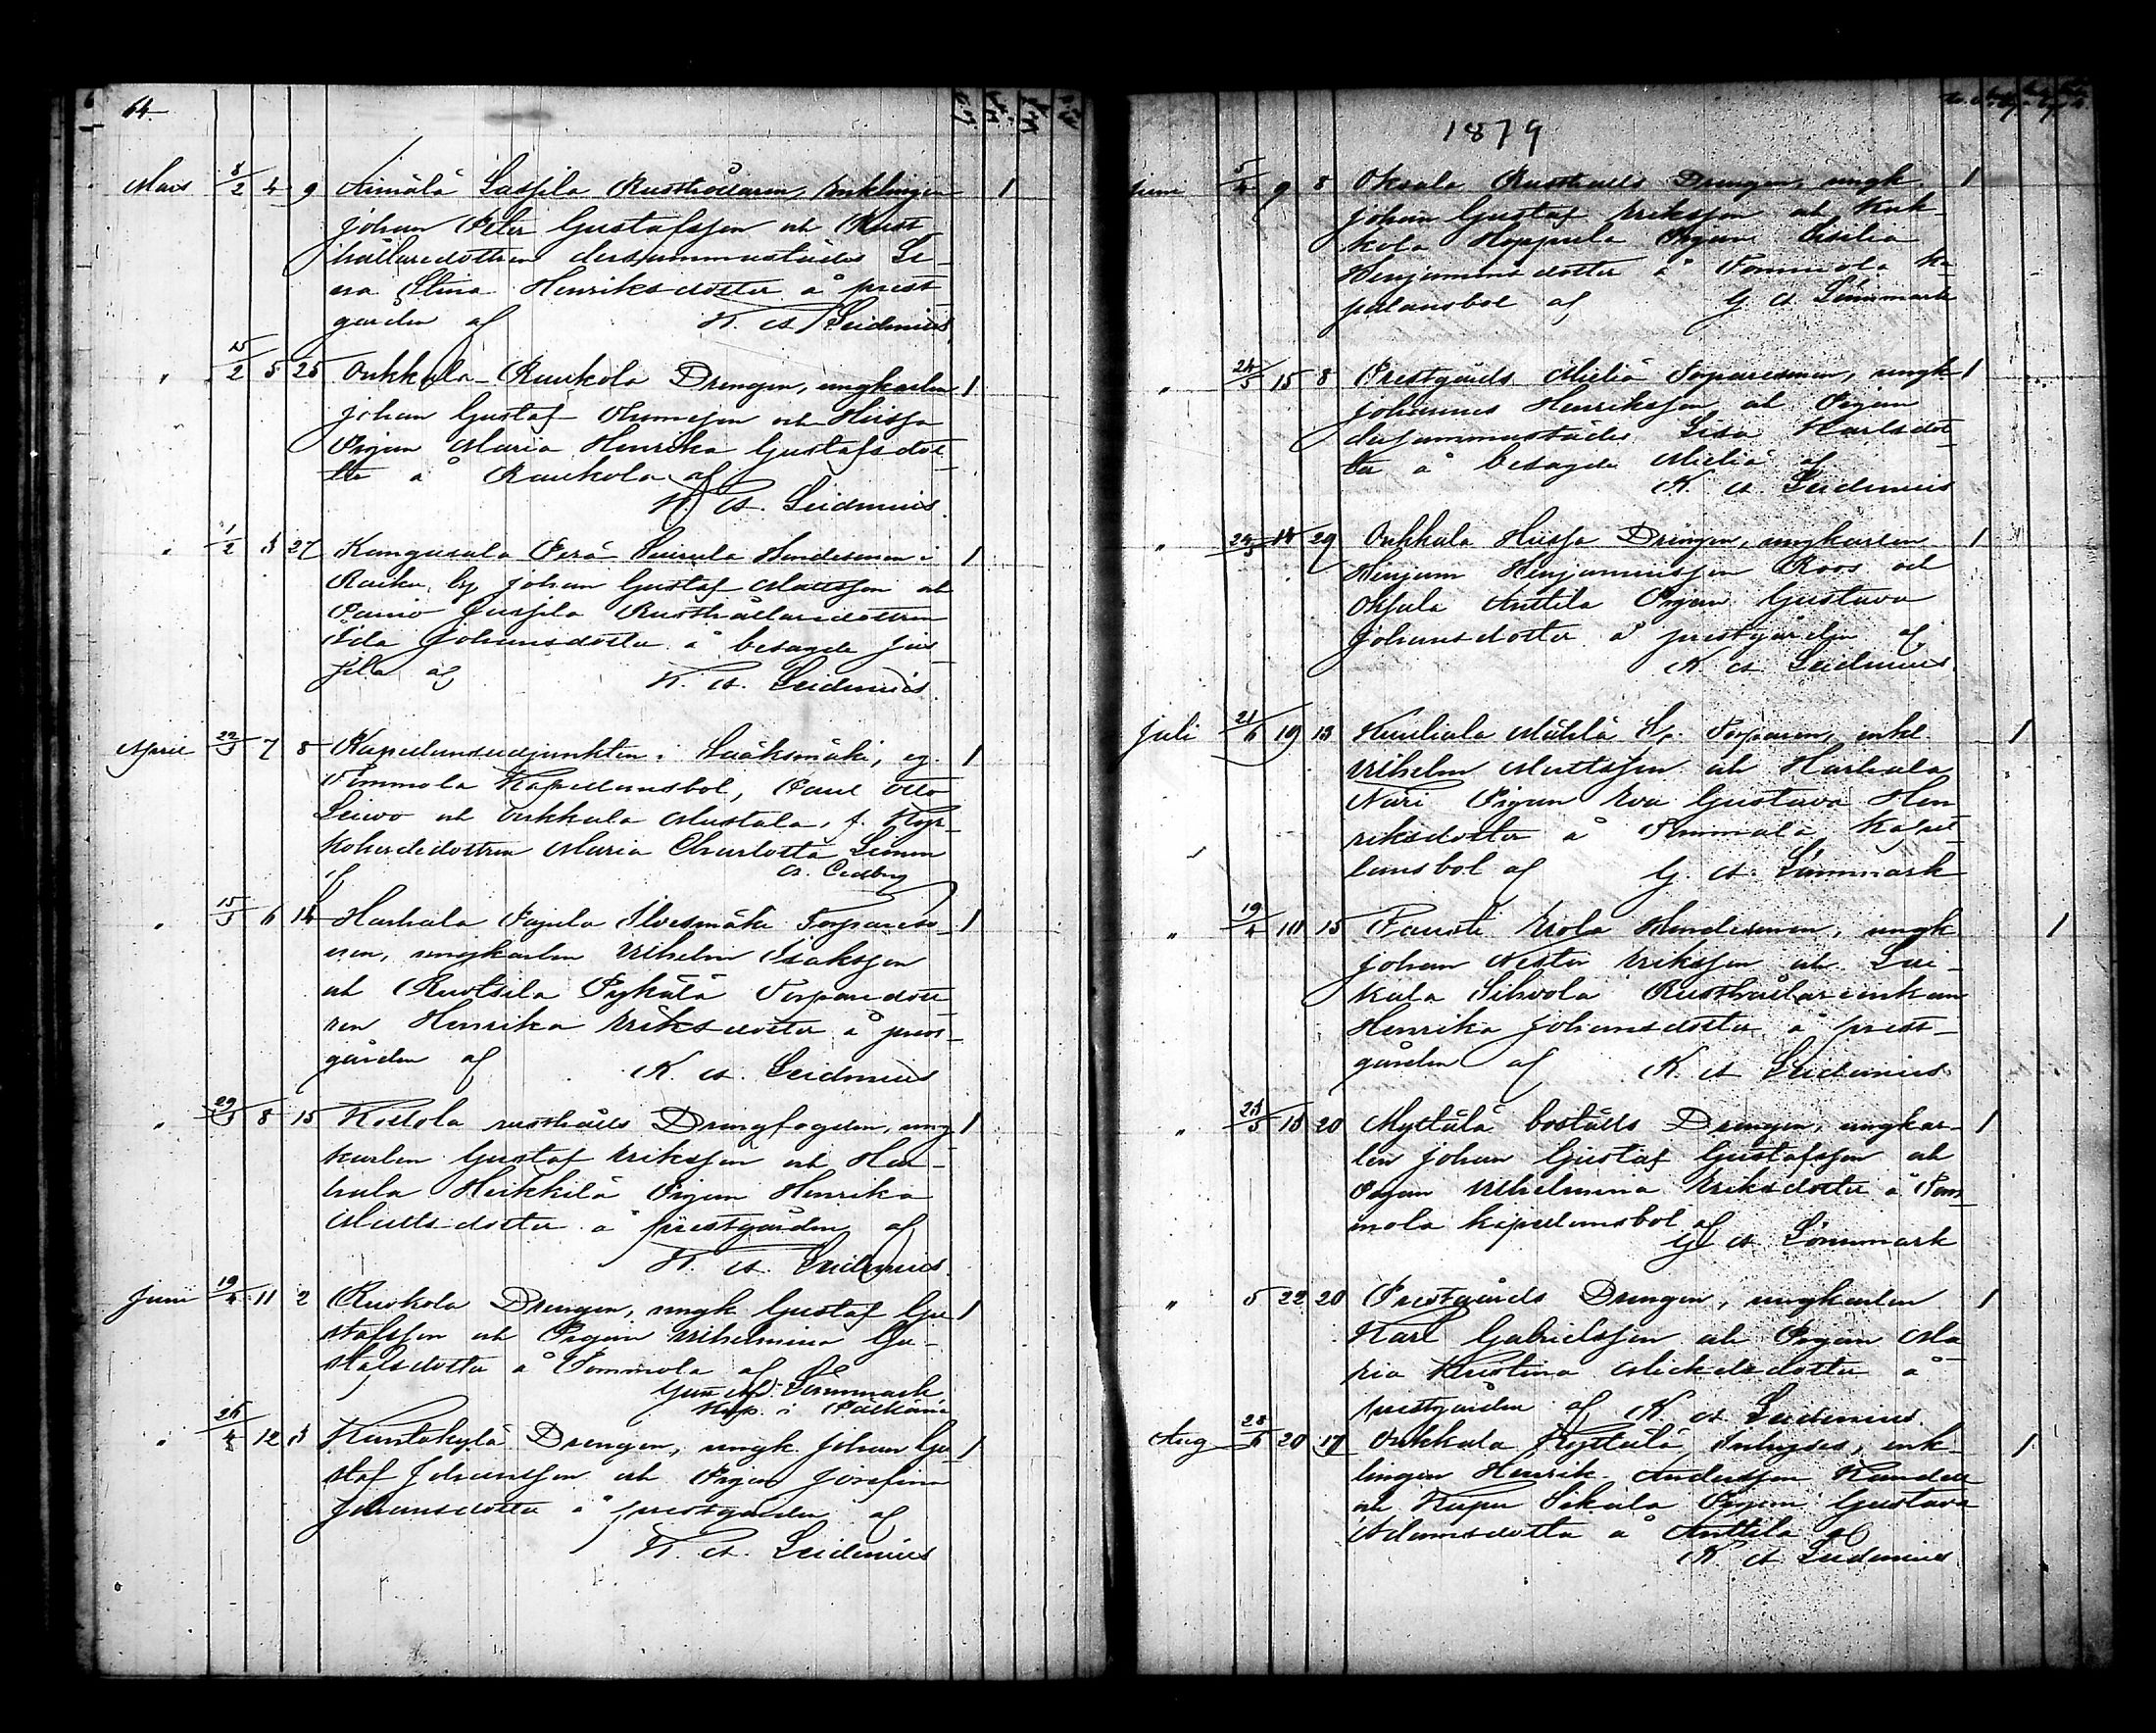 64
Mars 8/2 4 9 Aimälä Lassila Rusthållaren, Enklingen 1
Johan Peter Gustafsson och Rust
hållaredottren dersammastädes Le-
na Stina Henriksdotter å prest
gården af K. A. Leidenius
" 25/2 5 25 Onkkala Ruukola Drengen, ungkarlen 1
Johan Gustaf Thomeson och Hussa
Pigan Maria Henrika Gustafsdot-
ter å Raukola af
K. A. Leidenius.
" 1/2 3 27 Kangasala Perä Suurula Hemmansman i 1
Raiku by Johan Gustaf Mattsson och
Jussila Rusthållaredottren
Ida Johansdotter å besagde Jus-
sila af K. A. Leidenius.
April 22/3 7 8 Kapellansadjunkten i Sääksmäki, og. 1
Tommola Kapellansbol, Paul Otto
Leivo och Onkkala Mustala, f.
Maria Charlotta
af A. Cedberg
" 15/3 6 14 Harhala Papila Ilvesmäki Torpareso- 1
nen, ungkarlen Vilhelm Isaksson
och Ruotsila Pykälä Torparedott
ren Henrika Eriksdotter å prest-
gården af K. A. Leidenius
" 29/3 8 15 Kostola rusthålls Drengfogden, ung 1
karlen Gustaf Eriksson och Har-
hala Heikkilä Pigan Henrika
Mattsdotter å prestgården af
K. A. Leidenius.
Juni 19/4 11 2 Ruokola Drengen, ungk. Gustaf Gu 1
stafsson och Pigan Vilhelmina Gu-
stafsdotter å Tommola af
Gust. Ad. Lönnmark
Kap. i Pälkäne
" 26/4 12 3 Kantokylä Drengen, ungk. Johan Gu 1
staf Johansson och Pigan Josefina
Johansdotter å prestgården af
K. A. Leidenius
1879
Juni 5/4 9 8 Oksala Rusthålls Drengen, ungk. 1
Johan Gustaf Eriksson och Kuk-
kola Hoppula Pigan Cesilia
Benjaminsdotter å Tommola ka
pelansbol af G. A. Lönnmark
" 24/5 15 8 Prestgårds Mieliä Torparesonen, ungk 1
Johannes Henriksson och Pigan
dersammastädes Lisa Karlsdot-
ter å besagde Mieliä af
K. A. Leidenius
" 24/5 14 29 Onkkala Hussa Drengen, ungkarlen 1
Benjam Benjaminsson Roos och
Oksala Anttila Pigan Gustava
Johansdotter å prestgården af
K. A. Leidenius.
Juli 21/6 19 13 Kuuliala Mälilä Sp. Torparen, enkl. 1
Vilhelm Mattsson och Harhala
Nari Pigan Eva Gustava Hen
riksdotter å Tommola Kapel
lansbol af G. A. Lönnmark
" 19/4 10 15 Tausti Erola Hemmansman, ungk 1
Johan Nestor Eriksson och Lai-
kala Sihvola Rusthållarenkan
Henrika Johansdotter å prest-
gården af K. A. Leidenius.
" 23/5 13 20 Myttälä boställs Drengen, ungkar- 1
len Johan Gustaf Gustafsson och
Pigan Vilhelmina Eriksdotter å Tom-
mola kapellansbol af
G. A. Lönnmark
" 5 22 20 Prestgårds Drengen, ungkarlen 1
Karl Gabrielsson och Pigan Ma
ria Kristina Mickelsdotter å
prestgården af K. A. Leidenius.
Aug 28/6 20 17 Onkkala Inhyses, enk- 1
lingen Henrik Andersson
och Sikala Pigan Gustava
Adamsdotter å Anttila af
K. A. Leidenius.